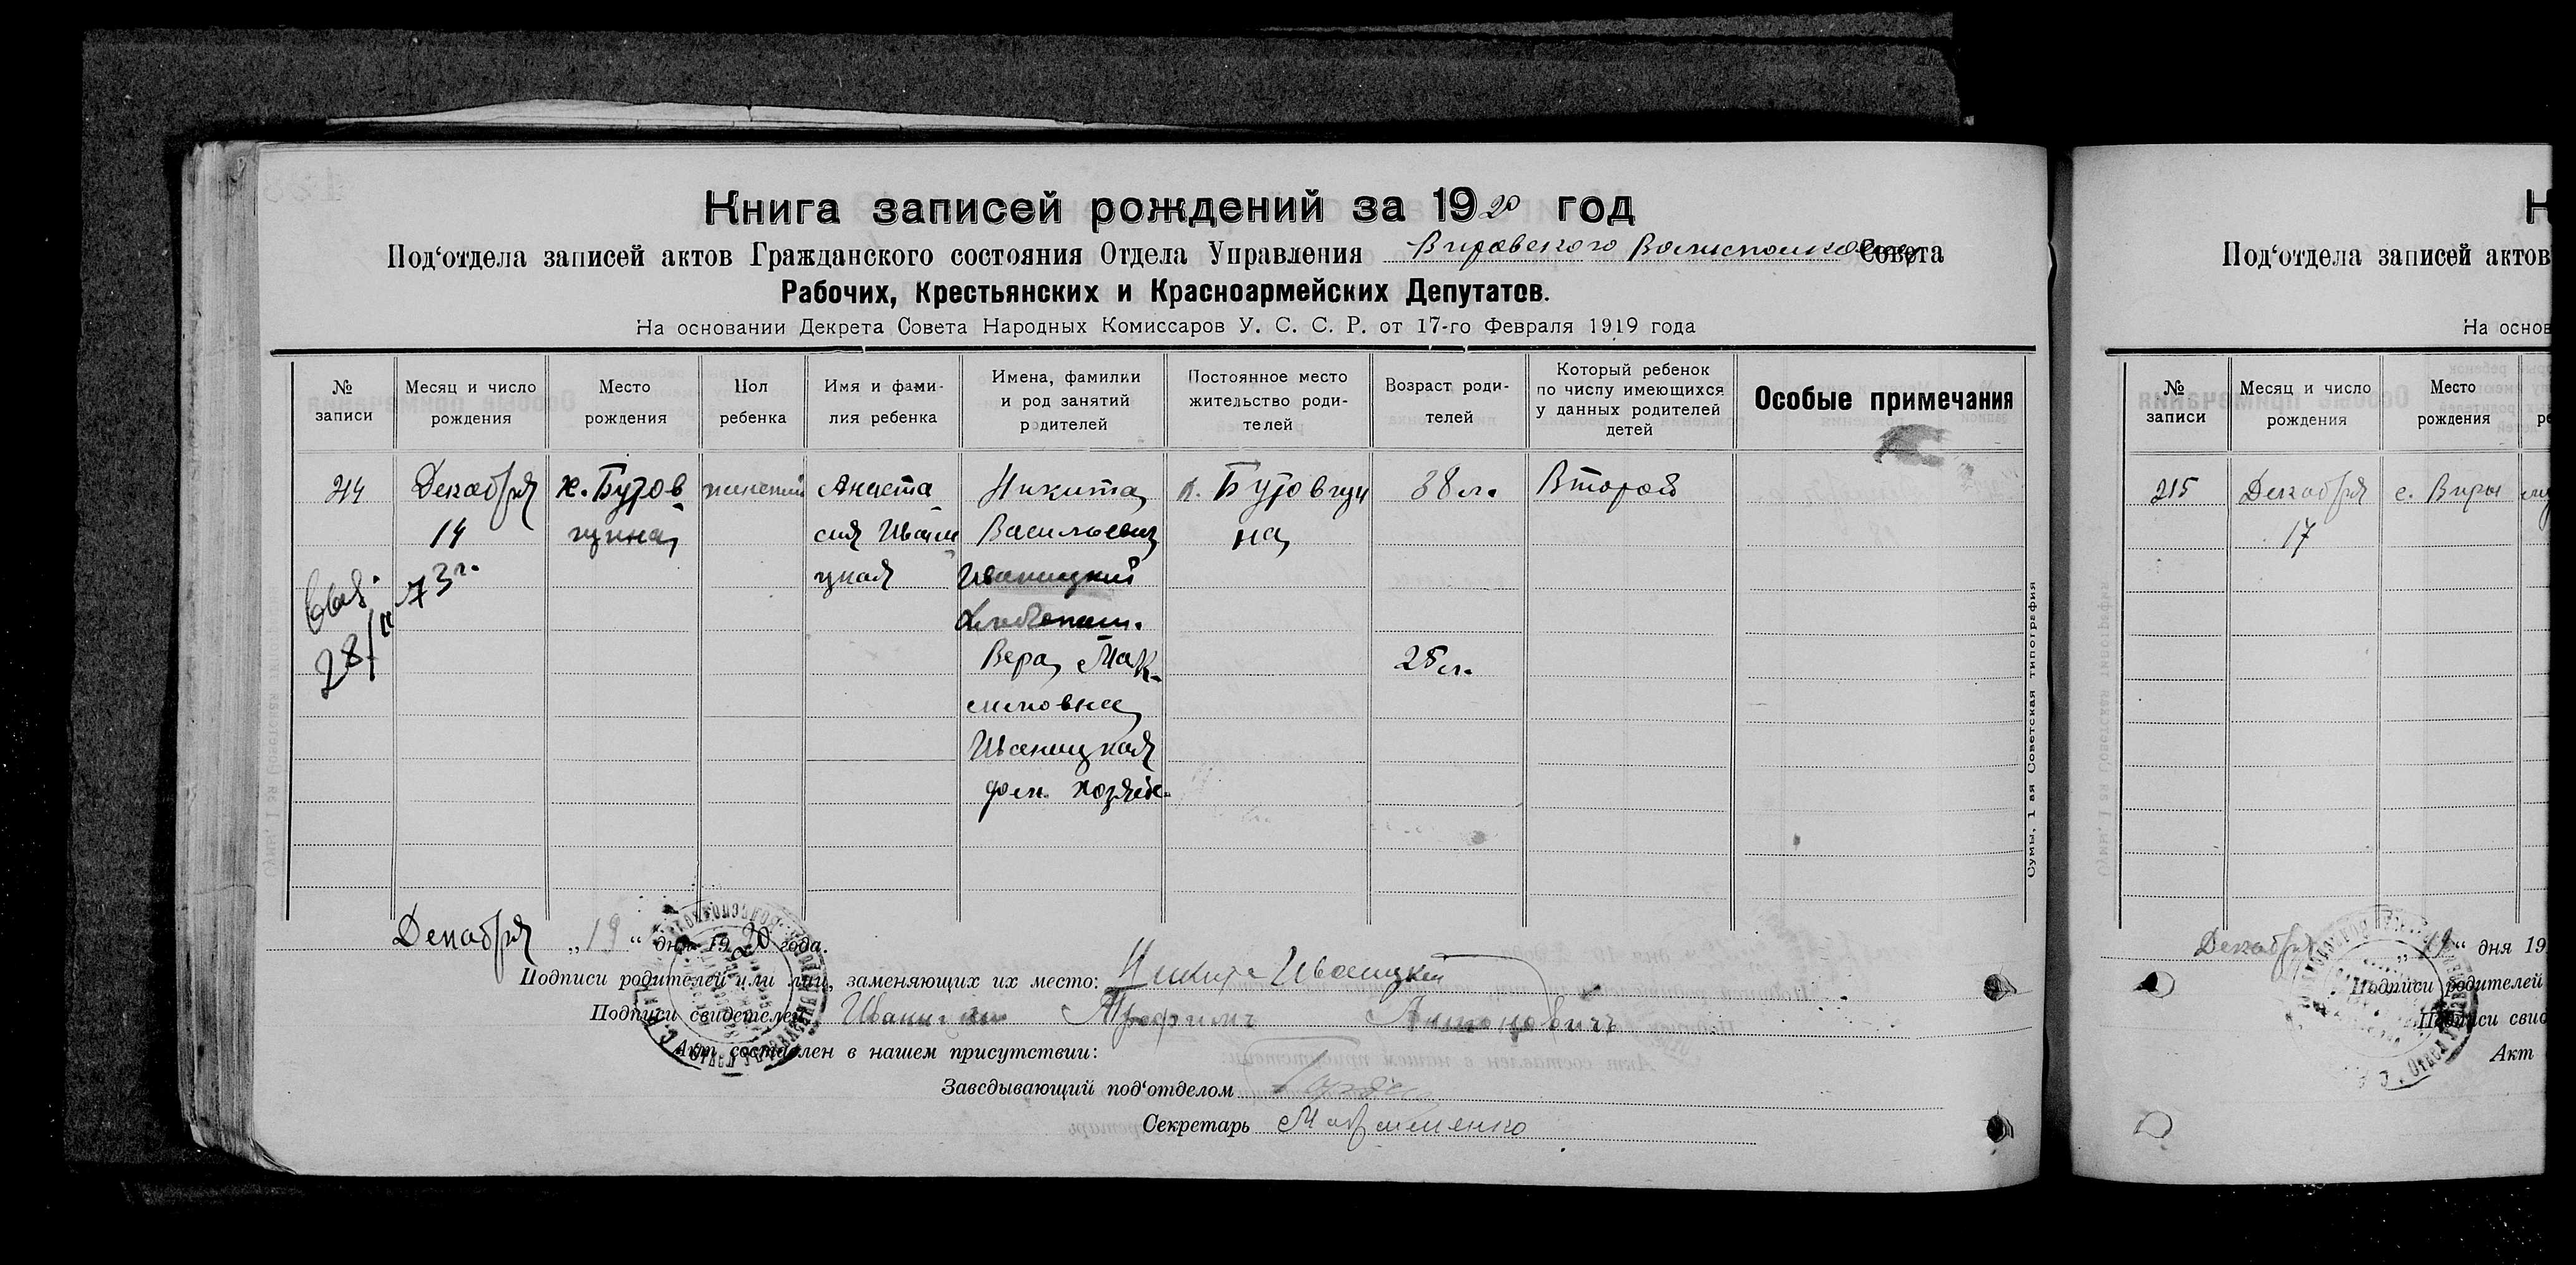 Книга записей рождений за 1920 год
Под‘отдела записей актов Гражданского состояния Отдела Управления Вировского Волисполкома Совета
Рабочих, Крестьянских и Красноармейских Депутатов.
На основании Декрета Совета Народных Комиссаров У. С. С. Р. от 17-го Февраля 1919 года
№ записи
Месяц и число рождения
Место рождения
Пол ребенка
Имя и фамилия ребенка
Имена, фамилии и род занятий родителей
Постоянное место жительство родителей
Возраст родителей
Который ребенок по числу имеющихся у данных родителей детей
Особые примечания
214
Декабря
14
х. Бутов
щина
женский
Анаста
сия Ивани
цкая
Никита
Васильевич
Иваницкий
Хлебопаш.
Вера Мак-
симовна
Иваницкая
дом. хозяйс.
х. Бутовщи
на
38 л.
28 л.
Второй
28/II 73 г.
Декабря „19“ дня 1920 года.
Подписи родителей или лиц, заменяющих их место: Никита Иваницкий
Подписи свидетелей Иваницкий Трофимъ Антоновичъ
Акт составлен в нашем присутствии:
Заведывающий под‘отделом
Секретарь
Сумы, 1 ая Советская типография
Н
Под‘отдела записей актов
На основ
№ записи
Месяц и число рождения
Место рождения
215
Декабря
17
с. Виры
Декабря „19“ дня 19
Подписи родителей
Подписи свид
Акт